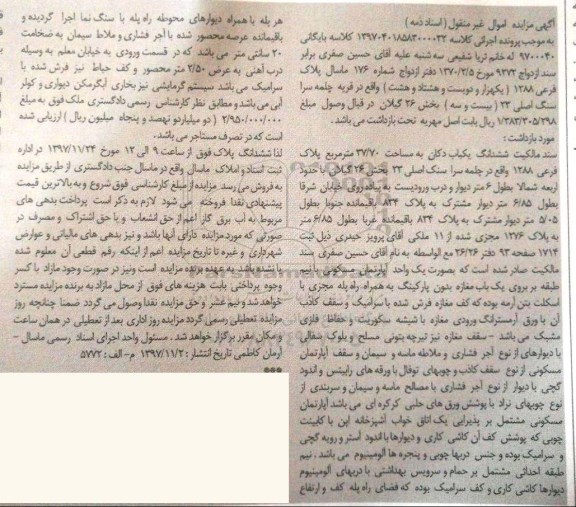 آگهی مزایده اموال غیر منقول (اسناد ذمه)
به موجب پرونده اجرائی کلاسه ۱۳۹۷۰۴۰۱۸۵۸۳۰۰۰۰۳۲ کلاسه بایگانی
۹۷۰۰۰۴۰ له خانم ثریا شفیعی سه شنبه علیه آقای حسین صفری برابر
سند ازدواج ۹۳۷۲ مورخ ۱۳۷۰/۲/۵ دفتر ازدواج شماره ۱۷۶ ماسال پلاک
فرعی ۱۲۸۸ (یکهزار و دویست و هشتاد و هشت) واقع در قریه چلمه سرا
سنگ اصلی ۲۳ (بیست و سه) بخش ۲۶ گیلان در قبال وصول مبلغ
۱/۳۸۳/۳۰۵/۲۹۸ ریال بابت اصل مهریه تحت بازداشت می باشد.
مورد بازداشت:
سند مالکیت ششدانگ یکباب دکان به مساحت ۳۷/۷۰ مترمربع پلاک
فرعی ۱۲۸۸ واقع در چلمه سرا سنگ اصلی ۲۳ بخش ۲۶ گیلان با حدود
اربعه شمالا بطول ۶ متر دیوار و درب ورودیست به پیاده روی خیابان شرقا
بطول ۶/۸۵ متر دیوار مشترک به پلاک ۸۳۴ باقیمانده جنوبا بطول
۵/۰۵ متر دیوار مشترک به پلاک ۸۳۴ باقیمانده غربا بطول ۶/۸۵ متر
به پلاک ۱۳۷۶ مجزی شده از ۱۱ ملکی آقای پرویز حیدری ذیل ثبت
۱۷۱۴ صفحه ۹۳ دفتر ۲۶/۲۶ مع الواسطه به نام آقای حسین صفری سند
مالکیت صادر شده است که بصورت یک واحد آپارتمان مسکونی یک نیم
طبقه بر روی یک باب مغازه بتون پارکینگ به همراه راه پله مجزی با
اسکلت بتن آرمه بوده که کف مغازه فرش شده با سرامیک و سقف کاذب
آن با ورق آرمسترانگ ورودی مغازه با شیشه سکوریت و حفاظ فلزی
مشبک می باشد - سقف مغازه نیز تیرچه بتونی مسلح و بلوک سفالی
با دیوارهای از نوع آجر فشاری و ملاط ماسه و سیمان و سقف آپارتمان
مسکونی از نوع سقف کاذب و چوبهای توفال با ورقه های رابیتس و اندود
گچی با دیوار از نوع آجر فشاری با مصالح ماسه و سیمان و سربندی از
نوع چوبهای نراد با پوشش ورق های حلبی کرکره ای می باشد آپارتمان
مسکونی مشتمل بر پذیرایی یک اتاق خواب آشپزخانه اپن با کابینت
چوبی که پوشش کف آن کاشی کاری و دیوارها با اندود آستر و رویه گچی
و سرامیک بوده و جنس دربها چوبی و پنجره ها آلومینیوم می باشد. نیم
طبقه احداثی مشتمل بر حمام و سرویس بهداشتی با دربهای آلومینیوم
دیوارها کاشی کاری و کف سرامیک بوده که فضای راه پله کف و ارتفاع
هر پله با همراه دیوارهای محوطه راه پله با سنگ نما اجرا گردیده و
باقیمانده عرصه محصور شده با آجر فشاری و ملاط سیمان به ضخامت
۲۰ سانتی متر می باشد که در قسمت ورودی به خیابان معلم به وسیله
درب آهنی به عرض ۲/۵۰ متر محصور و کف حیاط نیز فرش شده با
سرامیک می باشد سیستم گرمایشی نیز بخاری آبگرمکن دیواری و کولر
آبی می باشد و مطابق نظر کارشناس رسمی دادگستری ملک فوق به مبلغ
۲/۹۵۰/۰۰۰/۰۰۰ (دو میلیارد و نهصد و پنجاه میلیون ریال) ارزیابی شده
است که در تصرف مستاجر می باشد.
لذا ششدانگ پلاک فوق از ساعت ۹ الی ۱۲ مورخ ۱۳۹۷/۱۱/۲۴ در اداره
ثبت اسناد و املاک ماسال واقع در ماسال جنب دادگستری از طریق مزایده
به فروش می رسد. مزایده از مبلغ کارشناسی فوق شروع و به بالاترین قیمت
پیشنهادی نقدا فروخته می شود. لازم به ذکر است پرداخت بدهی های
مربوط به آب برق گاز اعم از حق انشعاب و یا حق اشتراک و مصرف در
صورتی که مورد مزایده دارای آنها باشد و نیز بدهی های مالیاتی و عوارض
شهرداری و غیره تا تاریخ مزایده اعم از اینکه رقم قطعی آن معلوم شده
یا نشده باشد به عهده برنده مزایده است و نیز در صورت وجود مازاد با کسر
وجوه پرداختی بابت هزینه های فوق از محل مازاد به برنده مزایده مسترد
خواهد شد و نیم عشر و حق مزایده نقدا وصول می گردد ضمنا چنانچه روز
مزایده تعطیلی رسمی گردد مزایده روز اداری بعد از تعطیلی در همان ساعت
و مکان مقرر برگزار خواهد شد. مسئول واحد اجرای اسناد رسمی ماسال -
آرمان کاظمی تاریخ انتشار: ۱۳۹۷/۱۱/۲ م - الف: ۵۷۷۲